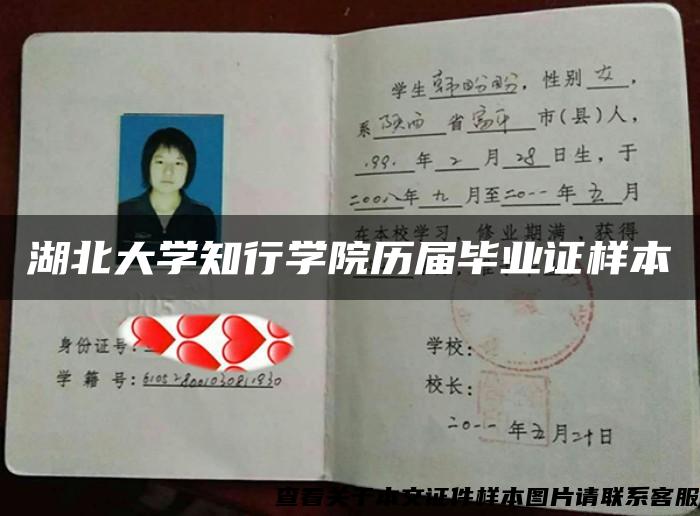 学生韩盼盼，性别女，
系陕西省富平市(县)人，
199.年2月28日生，于
二00八年九月至二0一一年五月
在本校学习，修业期满，获得
湖北大学知行学院历届毕业证样本
身份证号：
学籍号：610528001030811930
学校：
校长：
二0一一年五月二十日
查看关于本文证件样本图片请联系客服